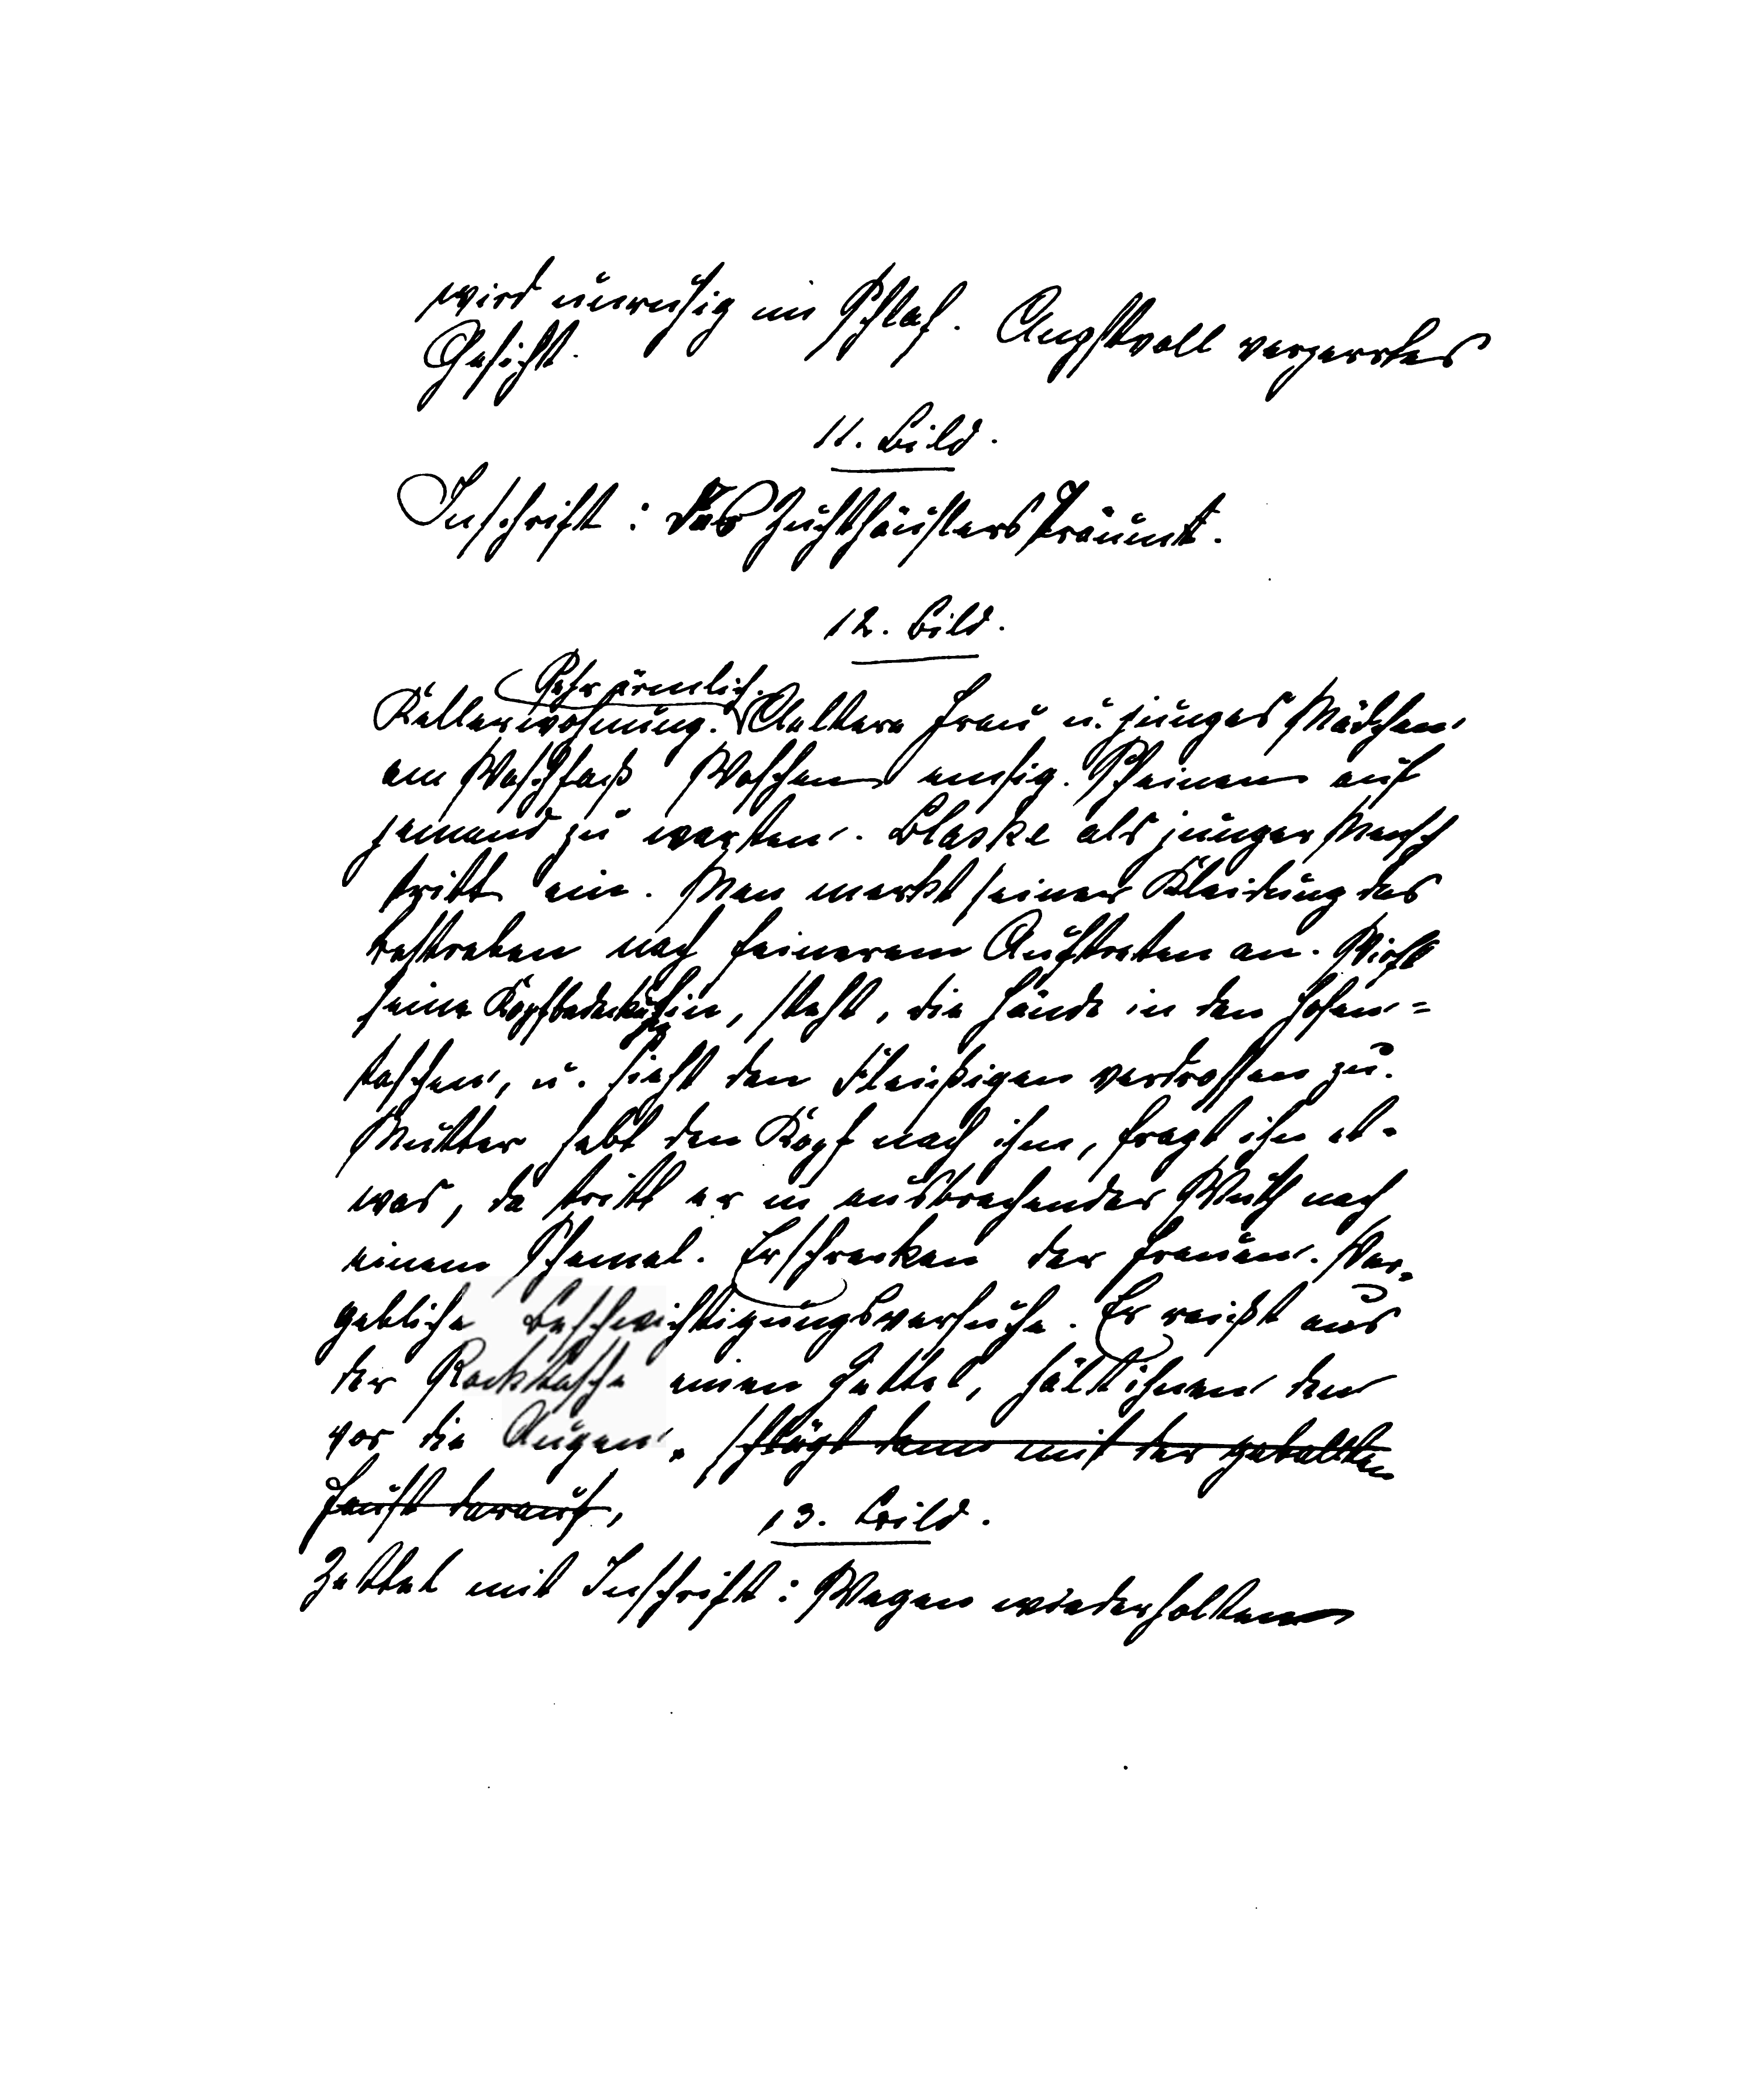 wird unruhig im Schlaf. Angstvoll verzerrtes
Gesicht.
11. Bild.
Inschrift: Des Zuchthäuslers Traum.
12. Bild.
Sehr ärmlich.
Kellerwohnung. Aeltere Frau u. junges Mädchen
am Waschfaß Waschen emsig. Scheinen auf
jemand zu warten. Blaske als junger Mensch
tritt ein. Man merkt seiner Kleidung das
Bestreben nach feinerem Auftreten an. Wirft
seine Kopfbedeckung hin, steht, die Hände in den Hosen=
taschen, u. sieht den Fleißigen verdrossen zu.
Mutter hebt den Kopf nach ihm, fragt ihn et-
was, da tritt er in ausbrechender Wuth nach
einem Schemel. Erschrecken der Frauen. Ver-
gebliche Beschwichtigungsversuche. Er reißt aus
der Rocktasche einen Zettel, hält ihnen den
vor die Augen. Schlägt dann mit der geballten
Faust darauf,
13. Bild.
Zettel mit Inschrift: Wegen wiederholten